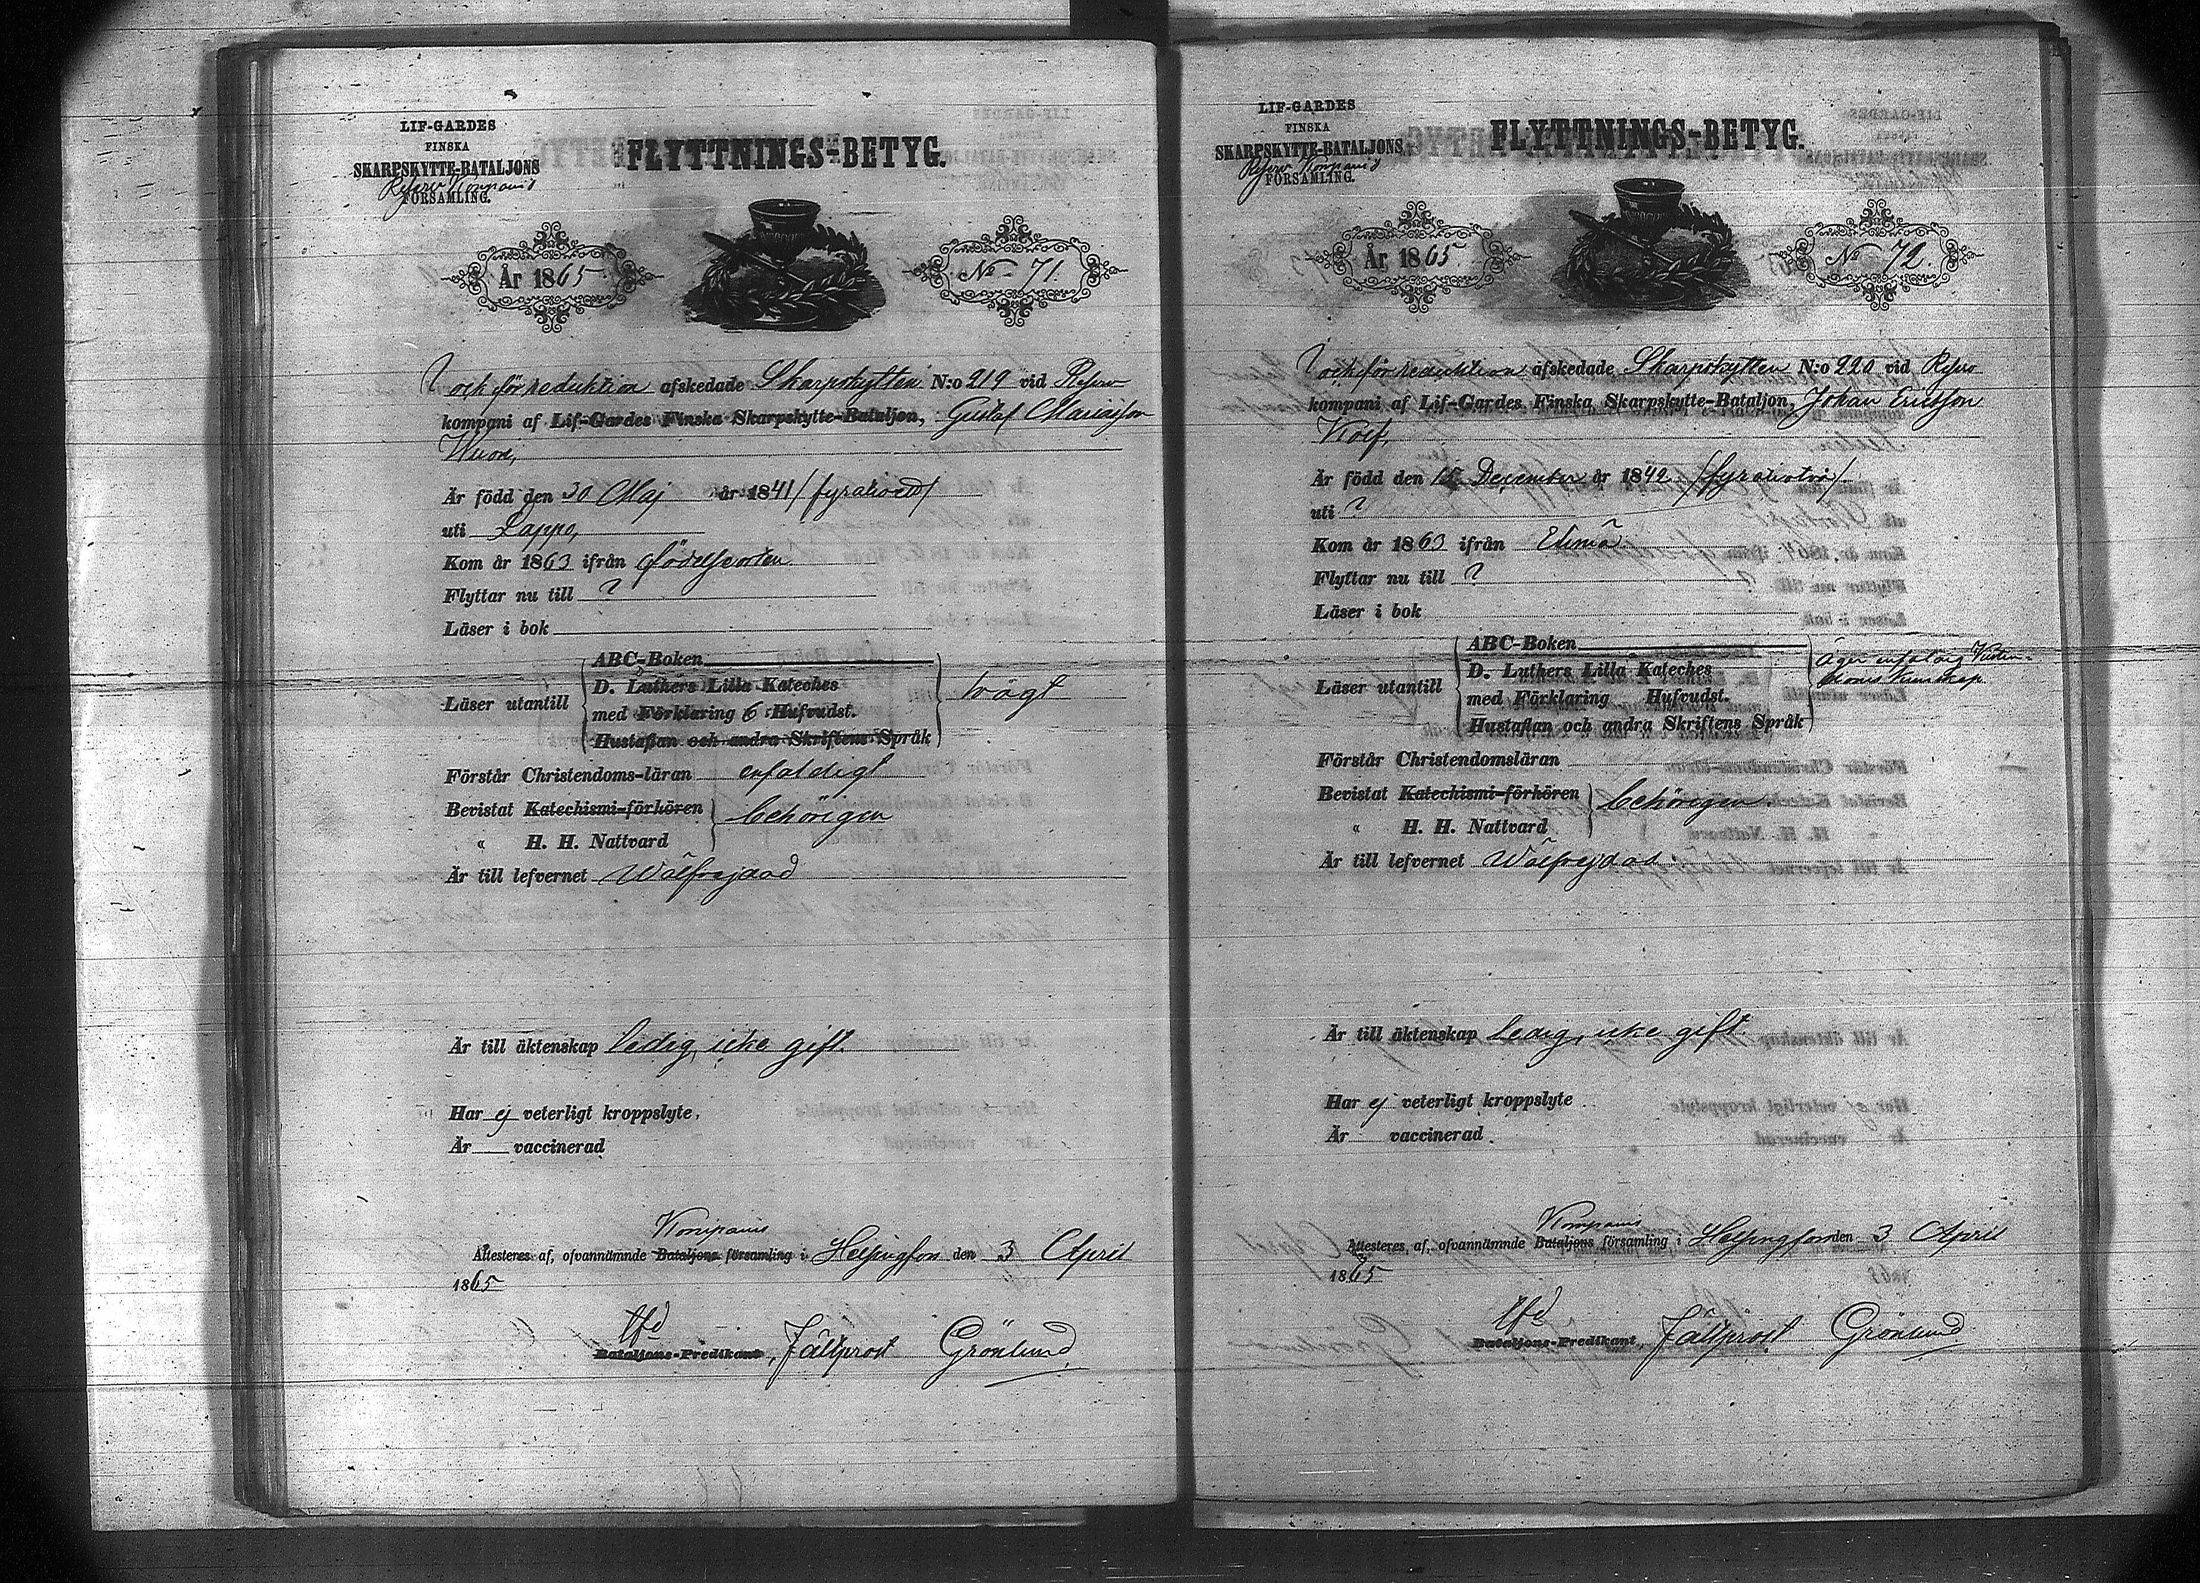 LIF-GARDES
FINSKA
SKARPSKYTTE-BATALJONS
Reserv Kompanis
FÖRSAMLING.
FLYTTNINGS-BETYG.
År 1865
No 71.
och för reduktion afskedade Skarpskytten N:o 219 vid Reserv
kompani af Lif-Gardes Finska Skarpskytte-Bataljon, Gustaf Mariæson
Är född den 30 Maj år 1841 /fyrationett/
uti Lappo,
Kom år 1863 ifrån födelseorten
Flyttar nu till ?
Läser i bok
Läser utantill
ABC-Boken
D. Luthers Lilla Kateches
med Förklaring 6 Hufvudst.
Hustaflan och andra Skriftens Språk
trögt
Förstår Christendoms-läran enfaldigt
Bevistat Katechismi-förhören
" H. H. Nattvard
behörigen
Är till lefvernet Wälfrejdad
Är till äktenskap ledig, icke gift.
Har ej veterligt kroppslyte.
Är vaccinerad
Kompanis
Attesteres af, ofvannämnde Bataljons församling i Helsingfors den 3 April
1865
Bataljons-Predikant, Fältprost Grönlund
LIF-GARDES
FINSKA
SKARPSKYTTE-BATALJONS
Reserv Kompanis
FÖRSAMLING.
FLYTTNINGS-BETYG.
År 1865
No 72.
och för reduktion afskedade Skarpskytten N:o 220 vid Reserv
kompani af Lif-Gardes Finska Skarpskytte-Bataljon, Johan Ericsson
Är född den 15 December år 1842 /fyrationtvå/
uti ?
Kom år 1863 ifrån Elimä
Flyttar nu till ?
Läser i bok
Läser utantill
ABC-Boken
D. Luthers Lilla Kateches
med Förklaring Hufvudst.
Hustaflan och andra Skriftens Språk
Äger enfaldig Kristen-
doms kunskap
Förstår Christendomsläran
Bevistat Katechismi-förhören
" H. H. Nattvard
behörigen
Är till lefvernet Wälfrejdad
Är till äktenskap ledig, icke gift.
Har ej veterligt kroppslyte
Är vaccinerad.
Kompanis
Attesteres, af, ofvannämnde Bataljons församling i Helsingfors den 3 April
1865
Bataljons-Predikant, Fältprost Grönlund